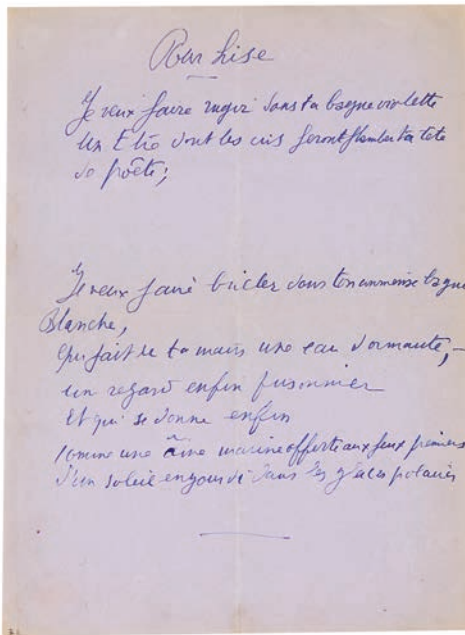 Pour Lise
Je veux faire rugir dans ta bague violette
Un Eté dont les cris feront flamber ta tête
de poête;
Je veux faire brûler dans ton immense bague
blanche,
Qui fait de ta main une eau dormante, –
un regard enfin prisonnier
Et qui se donne enfin
Comme une âme marine offerte aux feux premiers
D'un soleil engourdi dans les glaces polaires